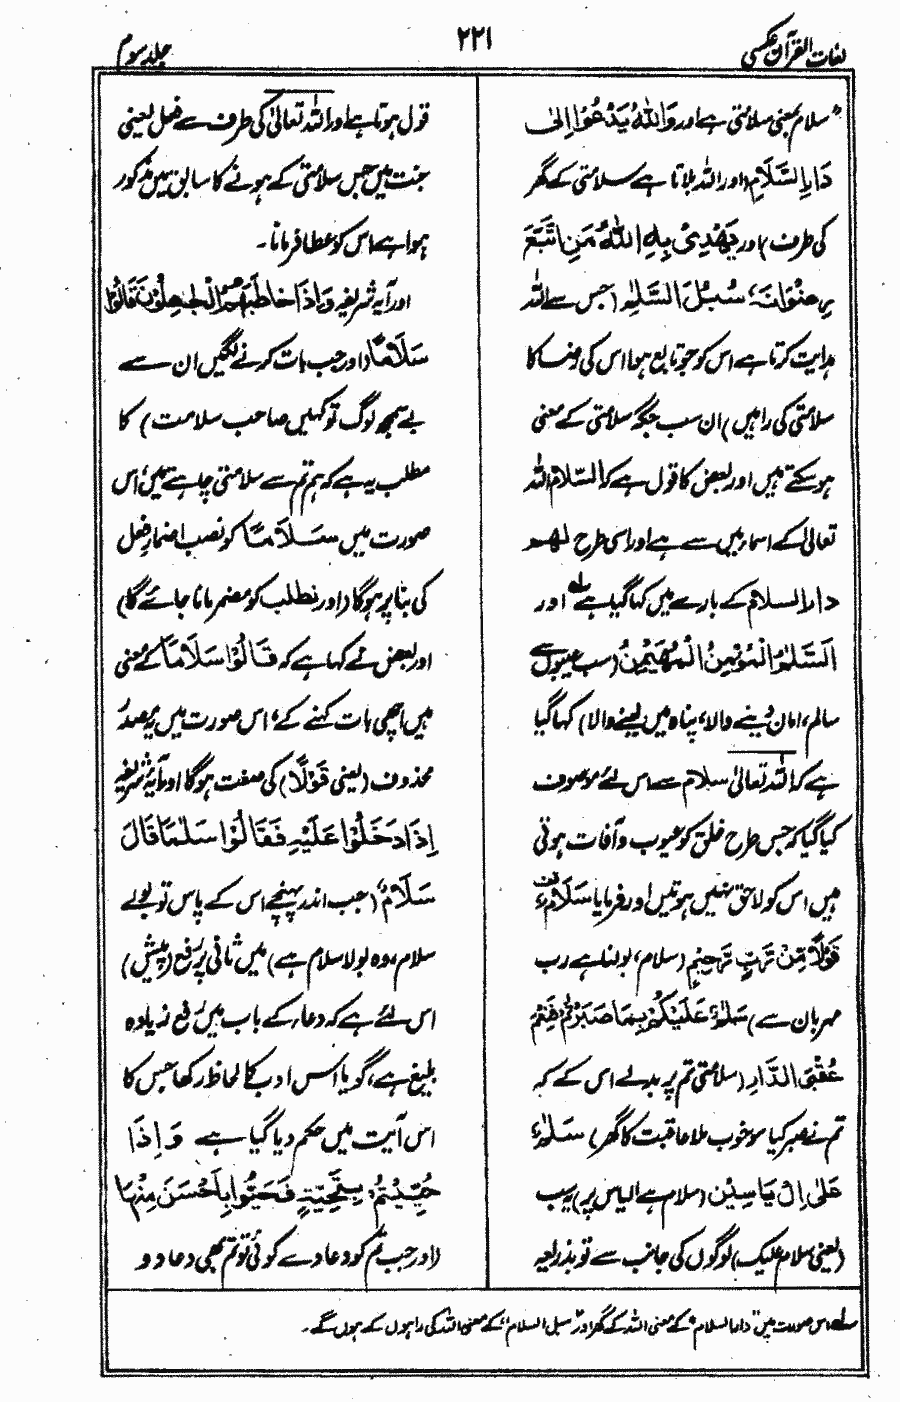 لغات القرآن عکسی
۲۲۱
جلد سوم
"سلام بمعنی سلامتی ہے اور وَاللّٰہُ یَدْعُوْا اِلٰی
دَارِ السَّلَامِ (اور اللہ بلاتا ہے سلامتی کے گھر
کی طرف) اور یَہْدِیْ بِہِ اللّٰہُ مَنِ اتَّبَعَ
رِضْوَانَہٗ سُبُلَ السَّلٰمِ (جس سے اللہ
ہدایت کرتا ہے اس کو جو تابع ہوا اس کی رضا کا
سلامتی کی راہیں) ان سب جگہ سلامتی کے معنی
ہو سکتے ہیں اور بعض کا قول ہے کہ السّلام اللہ
تعالیٰ کے اسماء میں سے ہے اور اسی طرح لھم
دار السلام کے بارے میں کہا گیا ہے لہ اور
اَلسَّلٰمُ الْمُؤْمِنُ الْمُہَیْمِنُ (سب عیبوں سے
سالم، امان دینے والا، پناہ میں لینے والا) کہا گیا
ہے کہ اللہ تعالیٰ سلام سے اس لئے موصوف
کیا گیا کہ جس طرح خلق کو عیوب و آفات ہوتی
ہیں اس کو لاحق نہیں ہوتیں اور فرمایا سَلَامٌ قف
قَوْلًا مِّنْ رَّبٍّ رَّحِیْمٍ (سلام، بولنا ہے رب
مہربان سے) سَلٰمٌ عَلَیْکُمْ بِمَا صَبَرْتُمْ فَنِعْمَ
عُقْبَی الدَّارِ (سلامتی تم پر بدلے اس کے کہ
تم نے صبر کیا سو خوب ملا عاقبت کا گھر) سَلٰمٌ
عَلٰی اِلْ یَاسِیْن (سلام ہے الیاس پر) یہ سب
(یعنی سلام علیک) لوگوں کی جانب سے تو بذریعہ
قول ہوتا ہے اور اللہ تعالیٰ کی طرف سے فعل یعنی
جنت میں جس سلامتی کے ہونے کا سابق میں مذکور
ہوا ہے اس کو عطا فرمانا۔
اور آیۃ شریفہ وَاِذَا خَاطَبَہُمُ الْجٰہِلُوْنَ قَالُوْا
سَلَامًا (اور جب بات کرنے لگیں ان سے
بے سمجھ لوگ تو کہیں صاحب سلامت) کا
مطلب یہ ہے کہ ہم تم سے سلامتی چاہتے ہیں، اس
صورت میں سَلَامًا کو نصب اضمارِ فعل
کی بنا پر ہوگا (اور نطلب کو مضمر مانا جائے گا)
اور بعض نے کہا ہے کہ قَالُوْا سَلَامًا کے معنی
ہیں اچھی بات کہنے کے، اس صورت میں یہ مصدر
محذوف (یعنی قَوْلًا) کی صفت ہوگا اور آیۃ شریفہ
اِذَا دَخَلُوْا عَلَیْہِ فَقَالُوْا سَلٰمًا قَالَ
سَلَامٌ (جب اندر پہنچے اس کے پاس تو بولے
سلام، وہ بولا سلام ہے) میں ثانی پر رفع (پیش)
اس لئے ہے کہ دعاء کے باب میں رفع زیادہ
بلیغ ہے، گویا اس ادب کا لحاظ رکھا جس کا
اس آیت میں حکم دیا گیا ہے وَاِذَا
حُیِّیْتُمْ بِتَحِیَّۃٍ فَحَیُّوْا بِاَحْسَنَ مِنْہَا
(اور جب تم کو دعا دے کوئی تو تم بھی دعا دو
لہ اس صورت میں "دار السلام" کے معنی اللہ کے گھر اور "سبل السلام" کے معنی اللہ کی راہوں کے ہوں گے۔